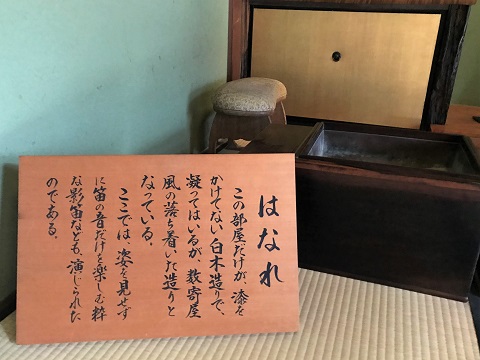 はなれ
この部屋だけが、漆を
かけてない白木造りで、
凝ってはいるが、数寄屋
風の落ち着いた造りと
なっている。
ここでは、姿を見せず
に笛の音だけを楽しむ粋
な影笛なども、演じられた
のである。